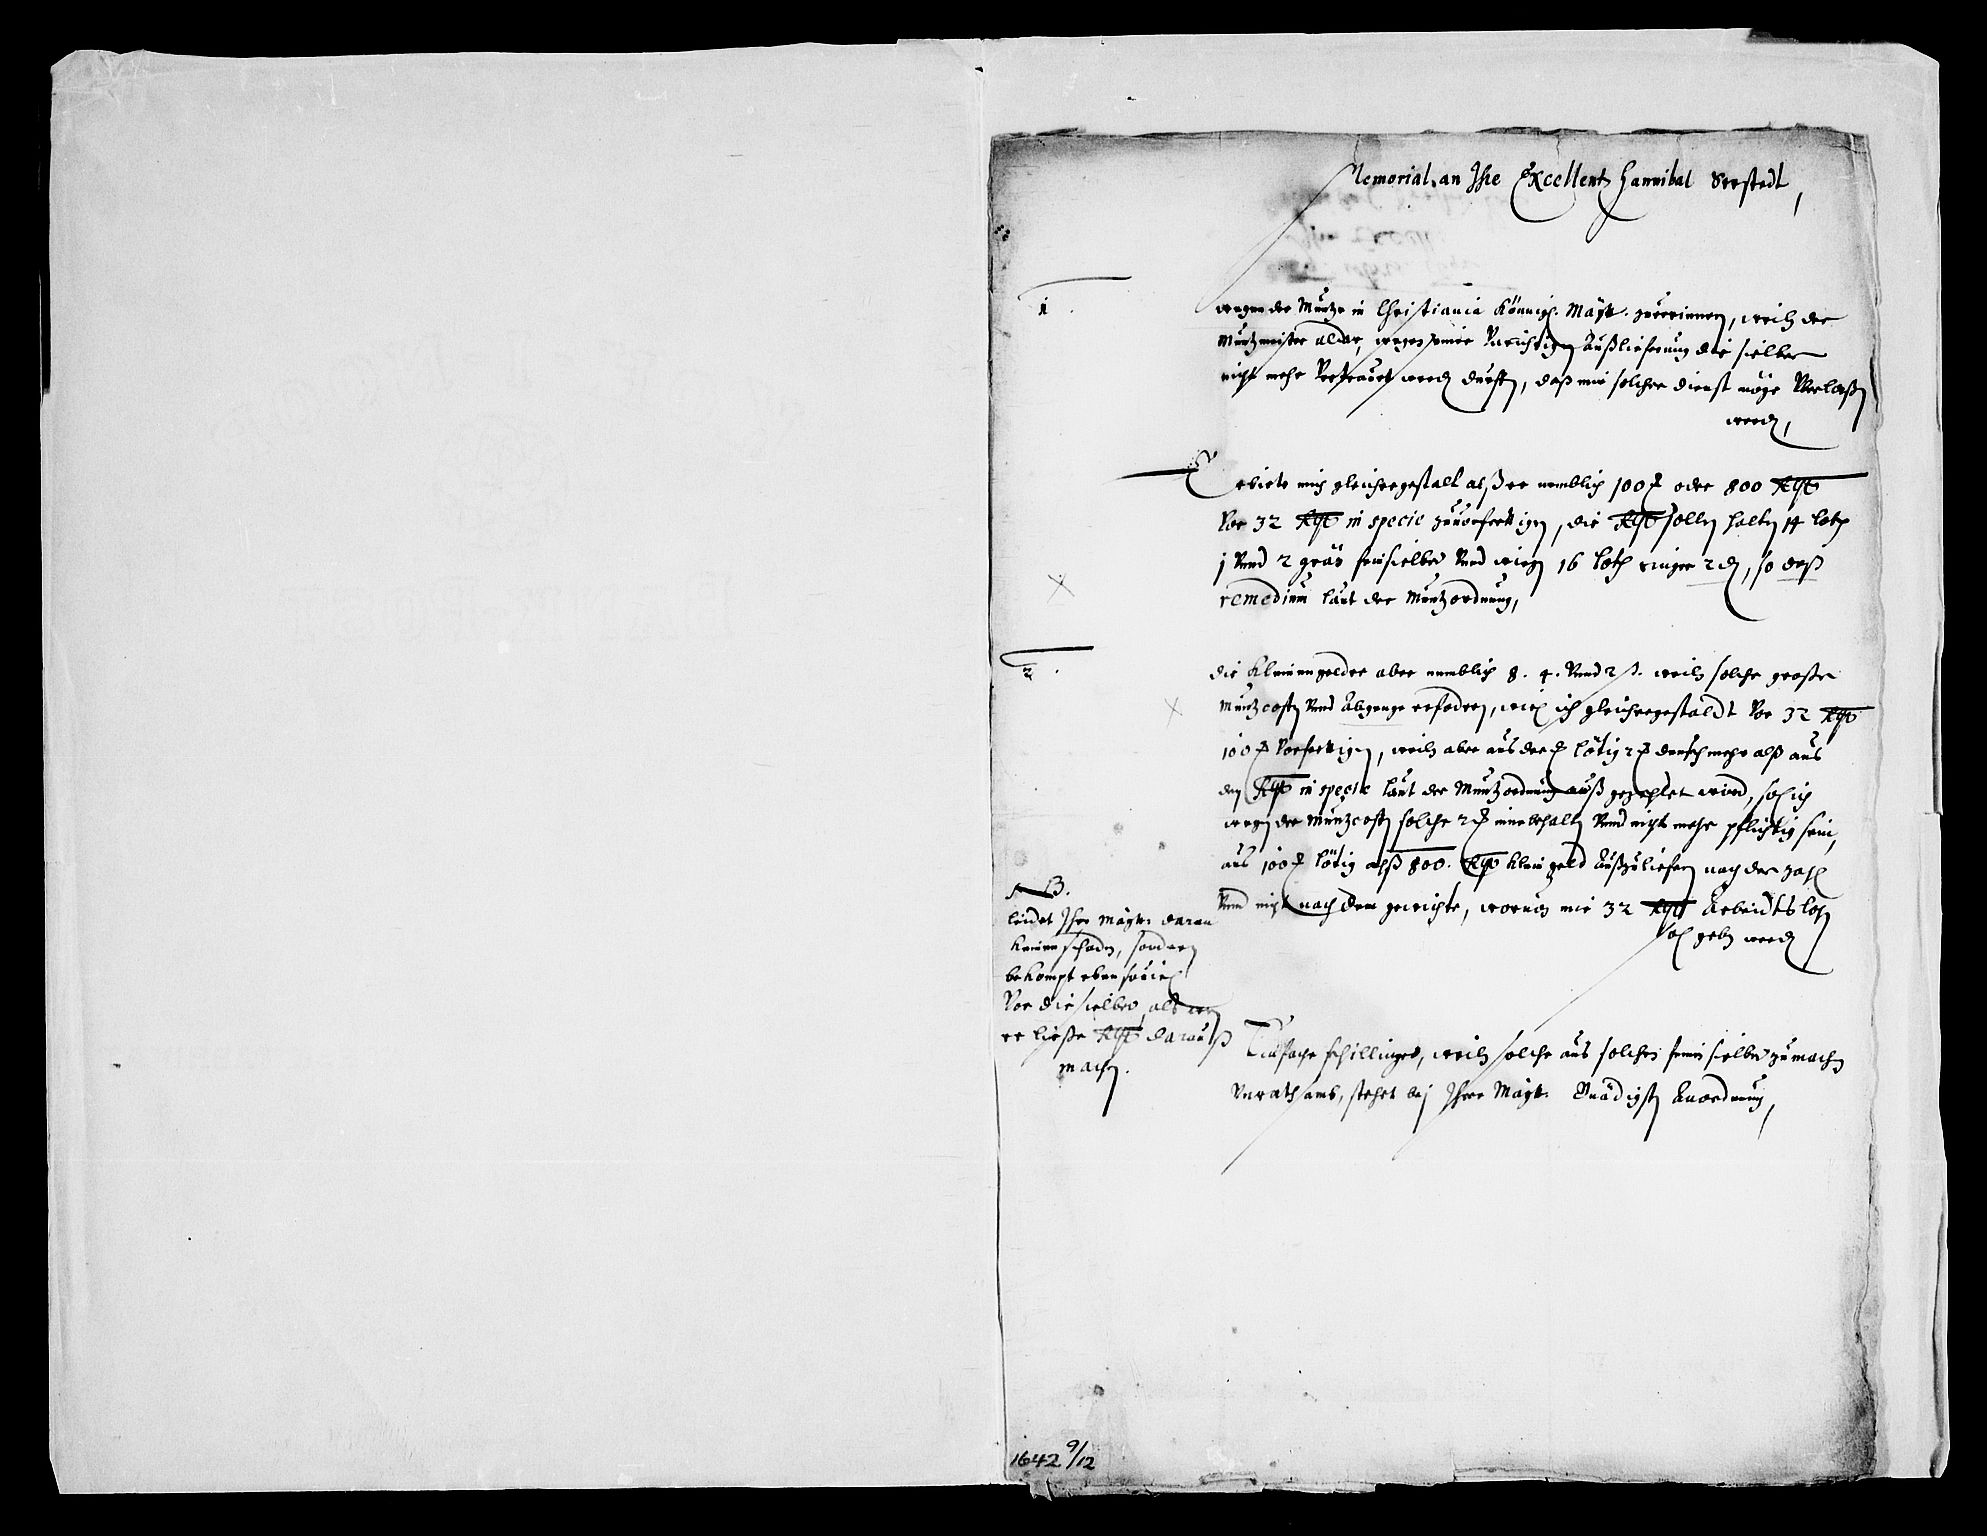 Memorial an Ihre Excellentz Hannibal Seestedt,
1.
wegen der Müntze in Christiania Königl. Maÿt. zuerinnern, weiln der
Müntzmeister aldar, wegen seiner Vnrichtigen Außlieferung die silber
nicht mehr Vertrauet werden durffte, daß mir solcher dienst möge Verlaßen
werden,
Erbiete mich gleichergestalt alß er nemblich 100 ℳ oder 800 Rthl
Vor 32 Rthl in specie zuuorfertigen, die Rthl sollen halten 14 loth
j Vnd 2 grän feinsilber Vnd wiegen 16 loth ringer 2 d, so daß
remedium laut der Müntzordnung,
2.
die Kleinen gelder aber nemblich 8. 4. Vnd 2 ß. weiln solche große
Müntzcosten Vnd Abgenge erfodern, wil ich gleichergestaldt Vor 32 Rthl
100 ℳ Vorfertigen, weiln aber aus der ℳ lötig 2 ℳ densch mehr alß aus
den Rthl in specie laut der Müntzordnung auß gezehlet wird, sol ich
wegen der Müntzcosten solche 2 ℳ innebehalten Vnd nicht mehr pflichtig sein,
aus 100 ℳ lötig alß 800. Rthl Klein geld Außzuliefern nach der zahl
Vnd nicht nach dem gewichte, woruon mir 32 Rthl Arbeidtslohn
sol geben werden
NB.
leidet Ihre Maÿt. daran
keinen schaden, sondern
bekompt eben souiel
Vor die silber, als wen
er ließe Rthl darauß
machen.
Einfache schillinger, weiln solche aus solchen fein silber zumachen
Vnrathsamb, stehet beÿ Ihrer Maÿt. Gnädigsten Anordnung,
1642 9/12